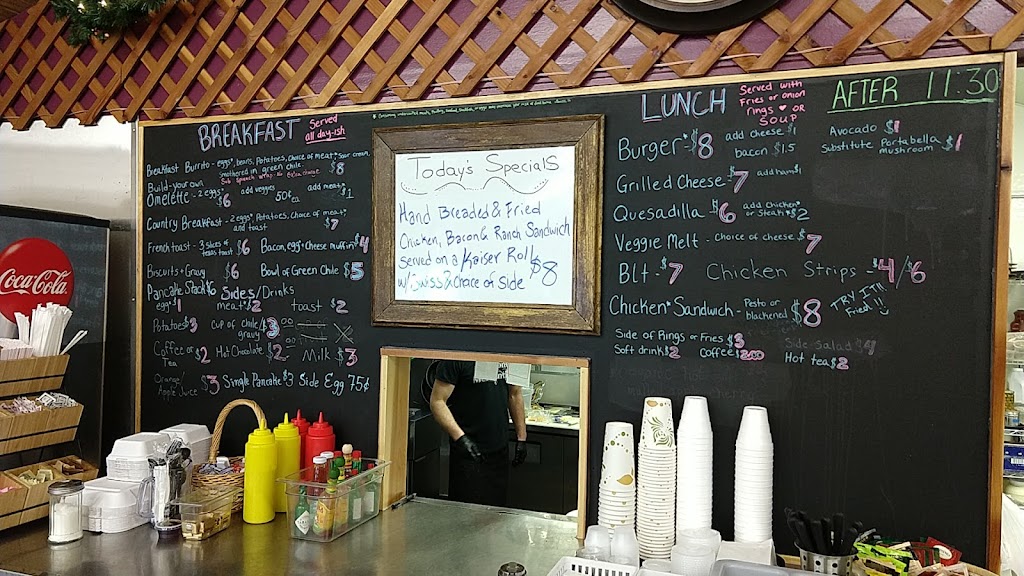 BREAKFAST
Served
all day-ish
Breakfast Burrito - eggs, beans, Potatoes, choice of meat, sour cream,
smothered in green chile. $8
Build-your own
Omelette - 2 eggs $6 add veggies 50¢ ea add meat $1
Country Breakfast - 2 eggs, Potatoes, choice of meat,
and toast $7
French toast - 3 slices of texas toast $6 Bacon, egg + cheese muffin $4
Biscuits + Gravy $6 Bowl of Green Chile $5
Pancake Stack $6 Sides/Drinks
egg $1 meat $2 toast $2
Potatoes $3 cup of chole/gravy $3.00
Coffee or Tea $2 Hot Chocolate $2 Milk $3
Orange/
Apple Juice $3 Single Pancake $3 Side Egg 75¢
Today's Specials
Hand Breaded & Fried
Chicken, Bacon & Ranch Sandwich
served on a Kaiser Roll $8
w/Swiss & Choice of Side
LUNCH
Served with
Fries or onion
rings ♥ OR
SOUP
AFTER 11:30
Burger* $8 add cheese $1
bacon $1.5
Avocado $1
Substitute Portabella mushroom $1
Grilled Cheese - $7 add ham $1
Quesadilla $6 add chicken
or steak $2
Veggie Melt - Choice of cheese $7
Blt - $7 Chicken Strips - $4/$6
Chicken* Sandwich - Pesto or
blackened $8 TRY IT
Fried!!
Side of Rings or Fries $3 Side Salad $4
Soft drink $2 Coffee $2.00 Hot tea $2
Coca-Cola